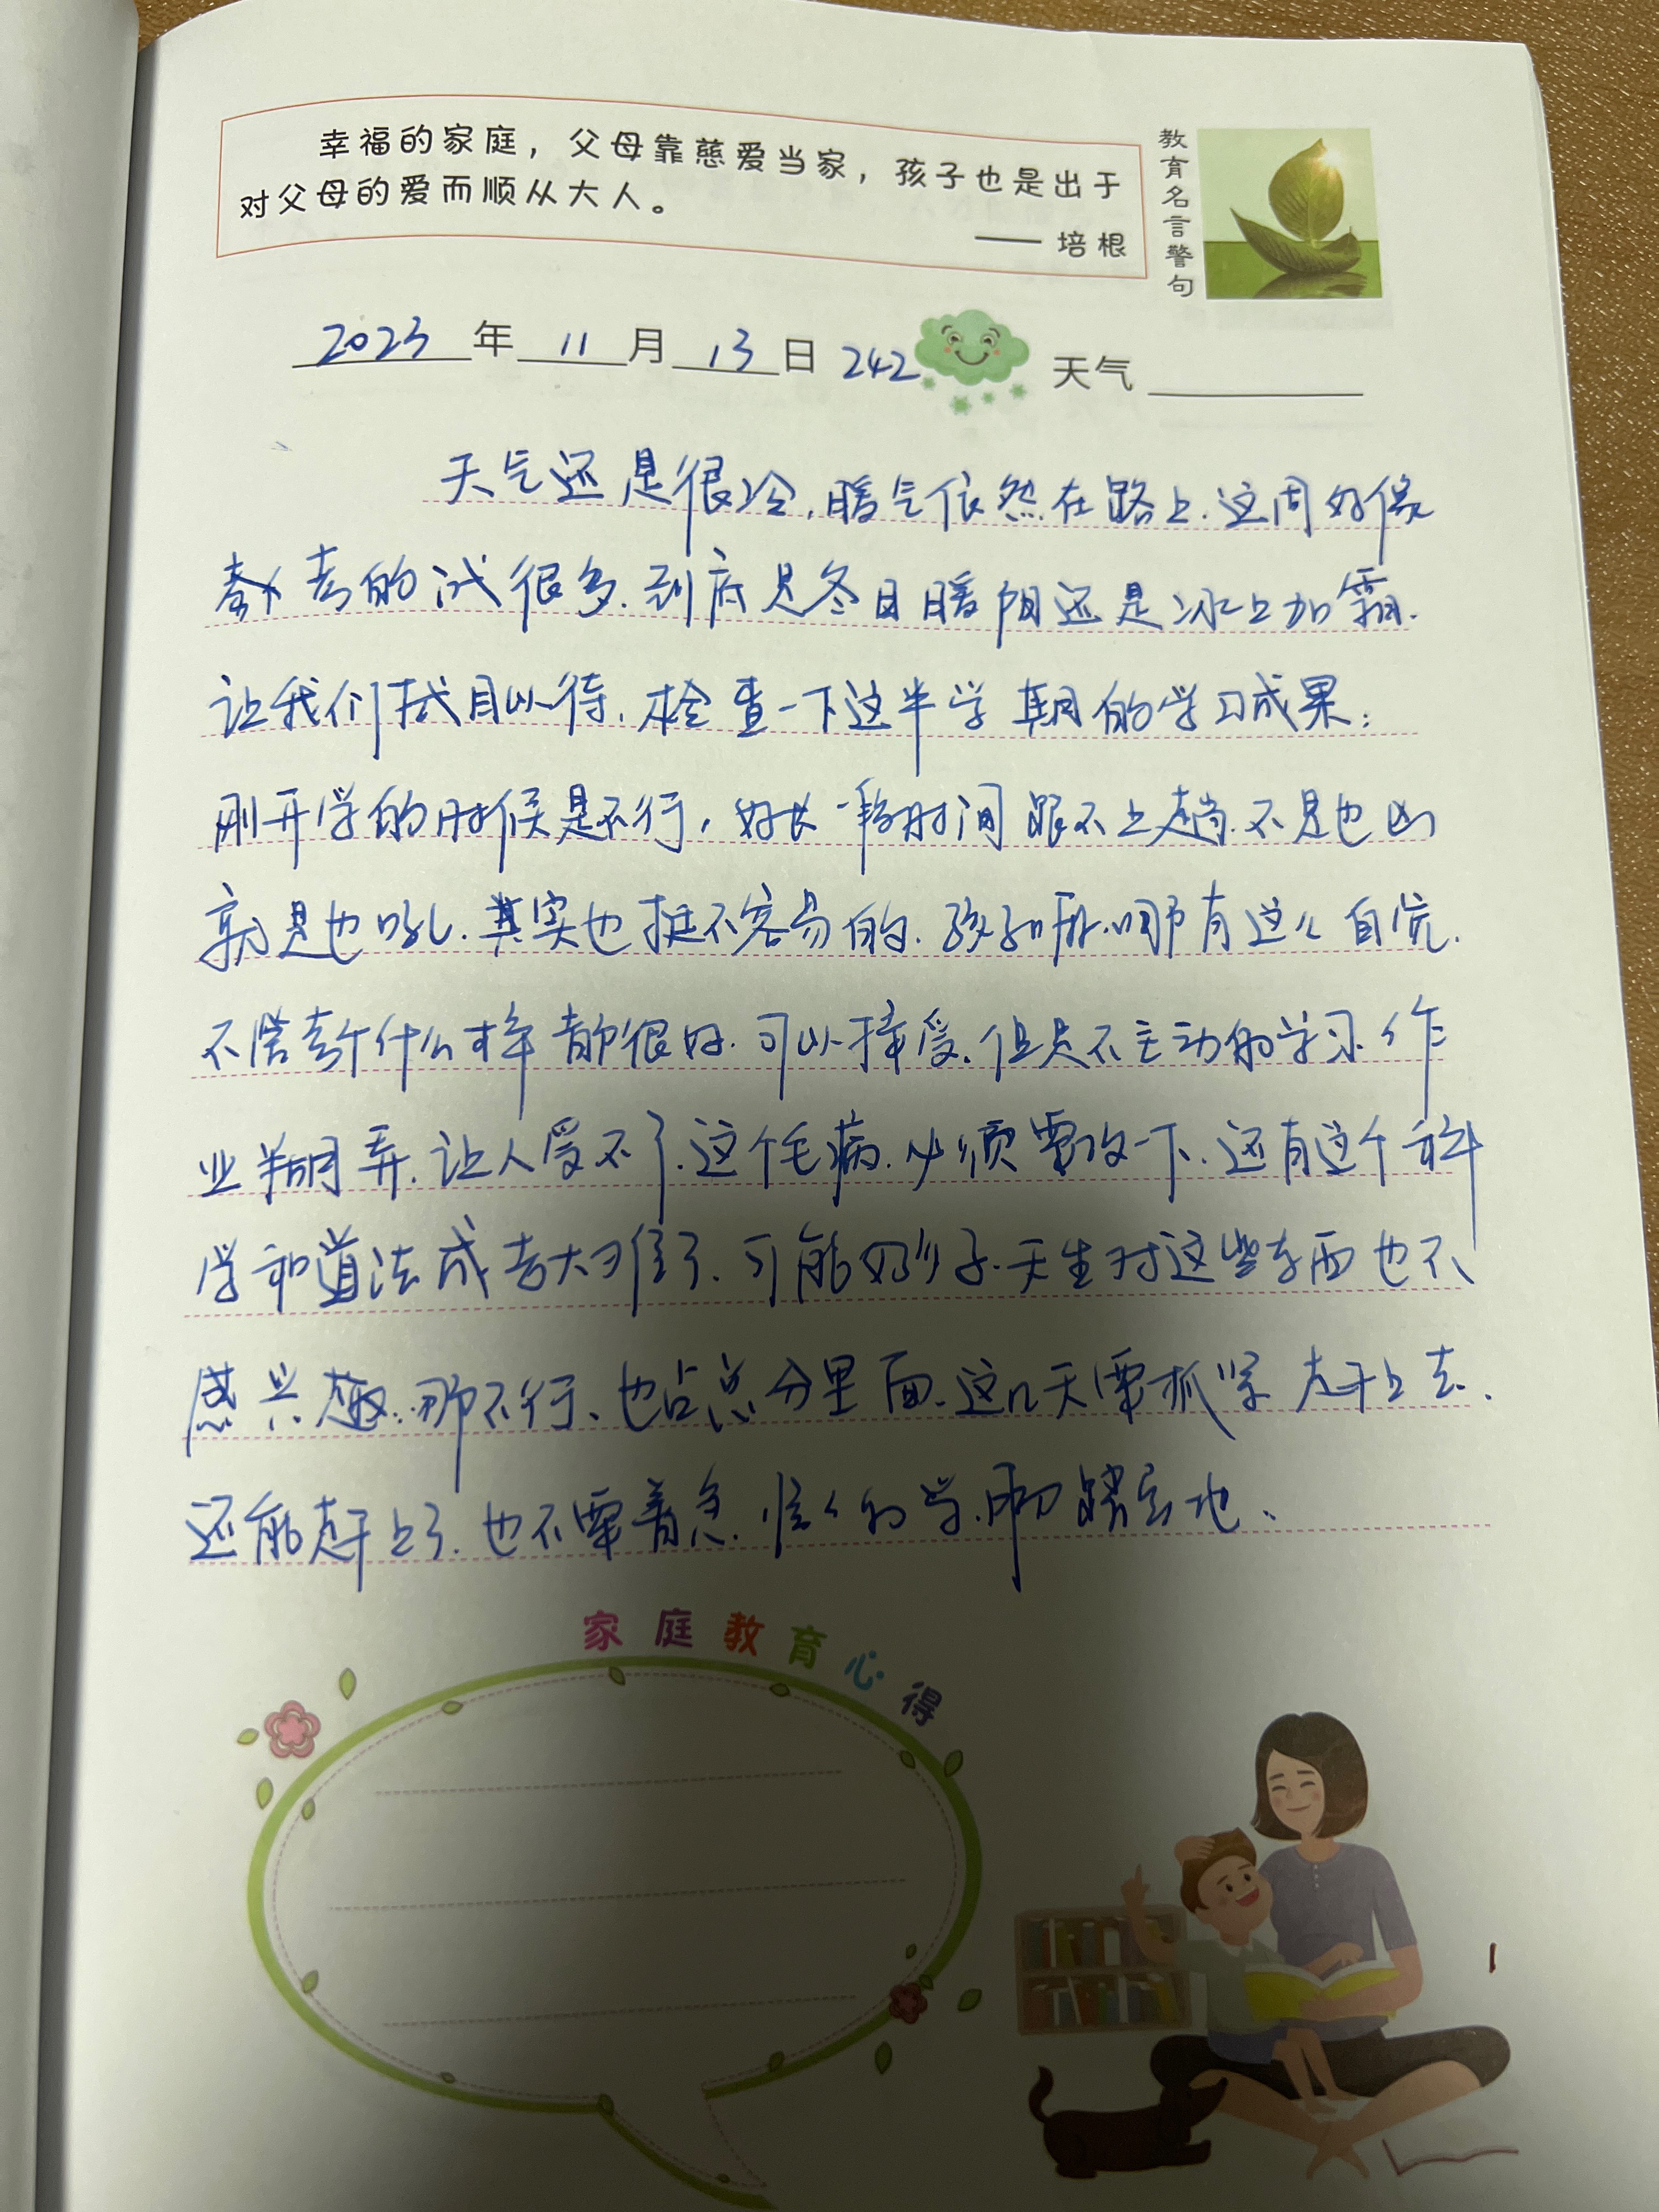 幸福的家庭，父母靠慈爱当家，孩子也是出于
对父母的爱而顺从大人。
—— 培根
教育名言警句
2023年11月13日 242 天气
天气还是很冷,暖气依然在路上.这周好像
考的试很多.到底是冬日暖阳还是冰上加霜.
让我们拭目以待.检查一下这半学期的学习成果:
刚开学的时候是不行,好长一段时间跟不上趟.不是他凶
就是他吼.其实也挺不容易的.孩子嘛.哪有这么自觉.
不管考个什么样都很好.可以接受.但是不主动的学习.作
业瞎弄.让人受不了.这个毛病.必须要改一下.还有这个科
学和道法成老大难了.可能妙子.天生对这些东西也不
感兴趣.那不行、也占总分里面.这几天要抓紧赶上去.
还能赶上了.也不要着急.慢慢的学.脚踏实地、
家庭教育心得